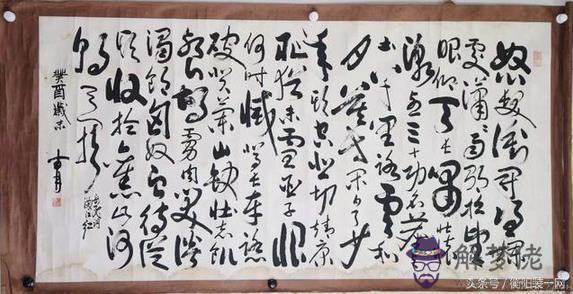 怒髮衝冠憑闌
處瀟瀟雨歇抬望
眼仰天長嘯壯懷
激烈三十功名塵
土八千里路雲和
月莫等闲白了少
年頭空悲切靖康
耻猶未雪臣子恨
何時滅駕長車踏
破賀蘭山缺壯志飢
餐胡虜肉笑談
渴飲匈奴血待從
頭收拾舊山河
朝天闕
岳飛詞
滿江紅
癸酉歲末
解梦姥
头条号/衡阳装一网